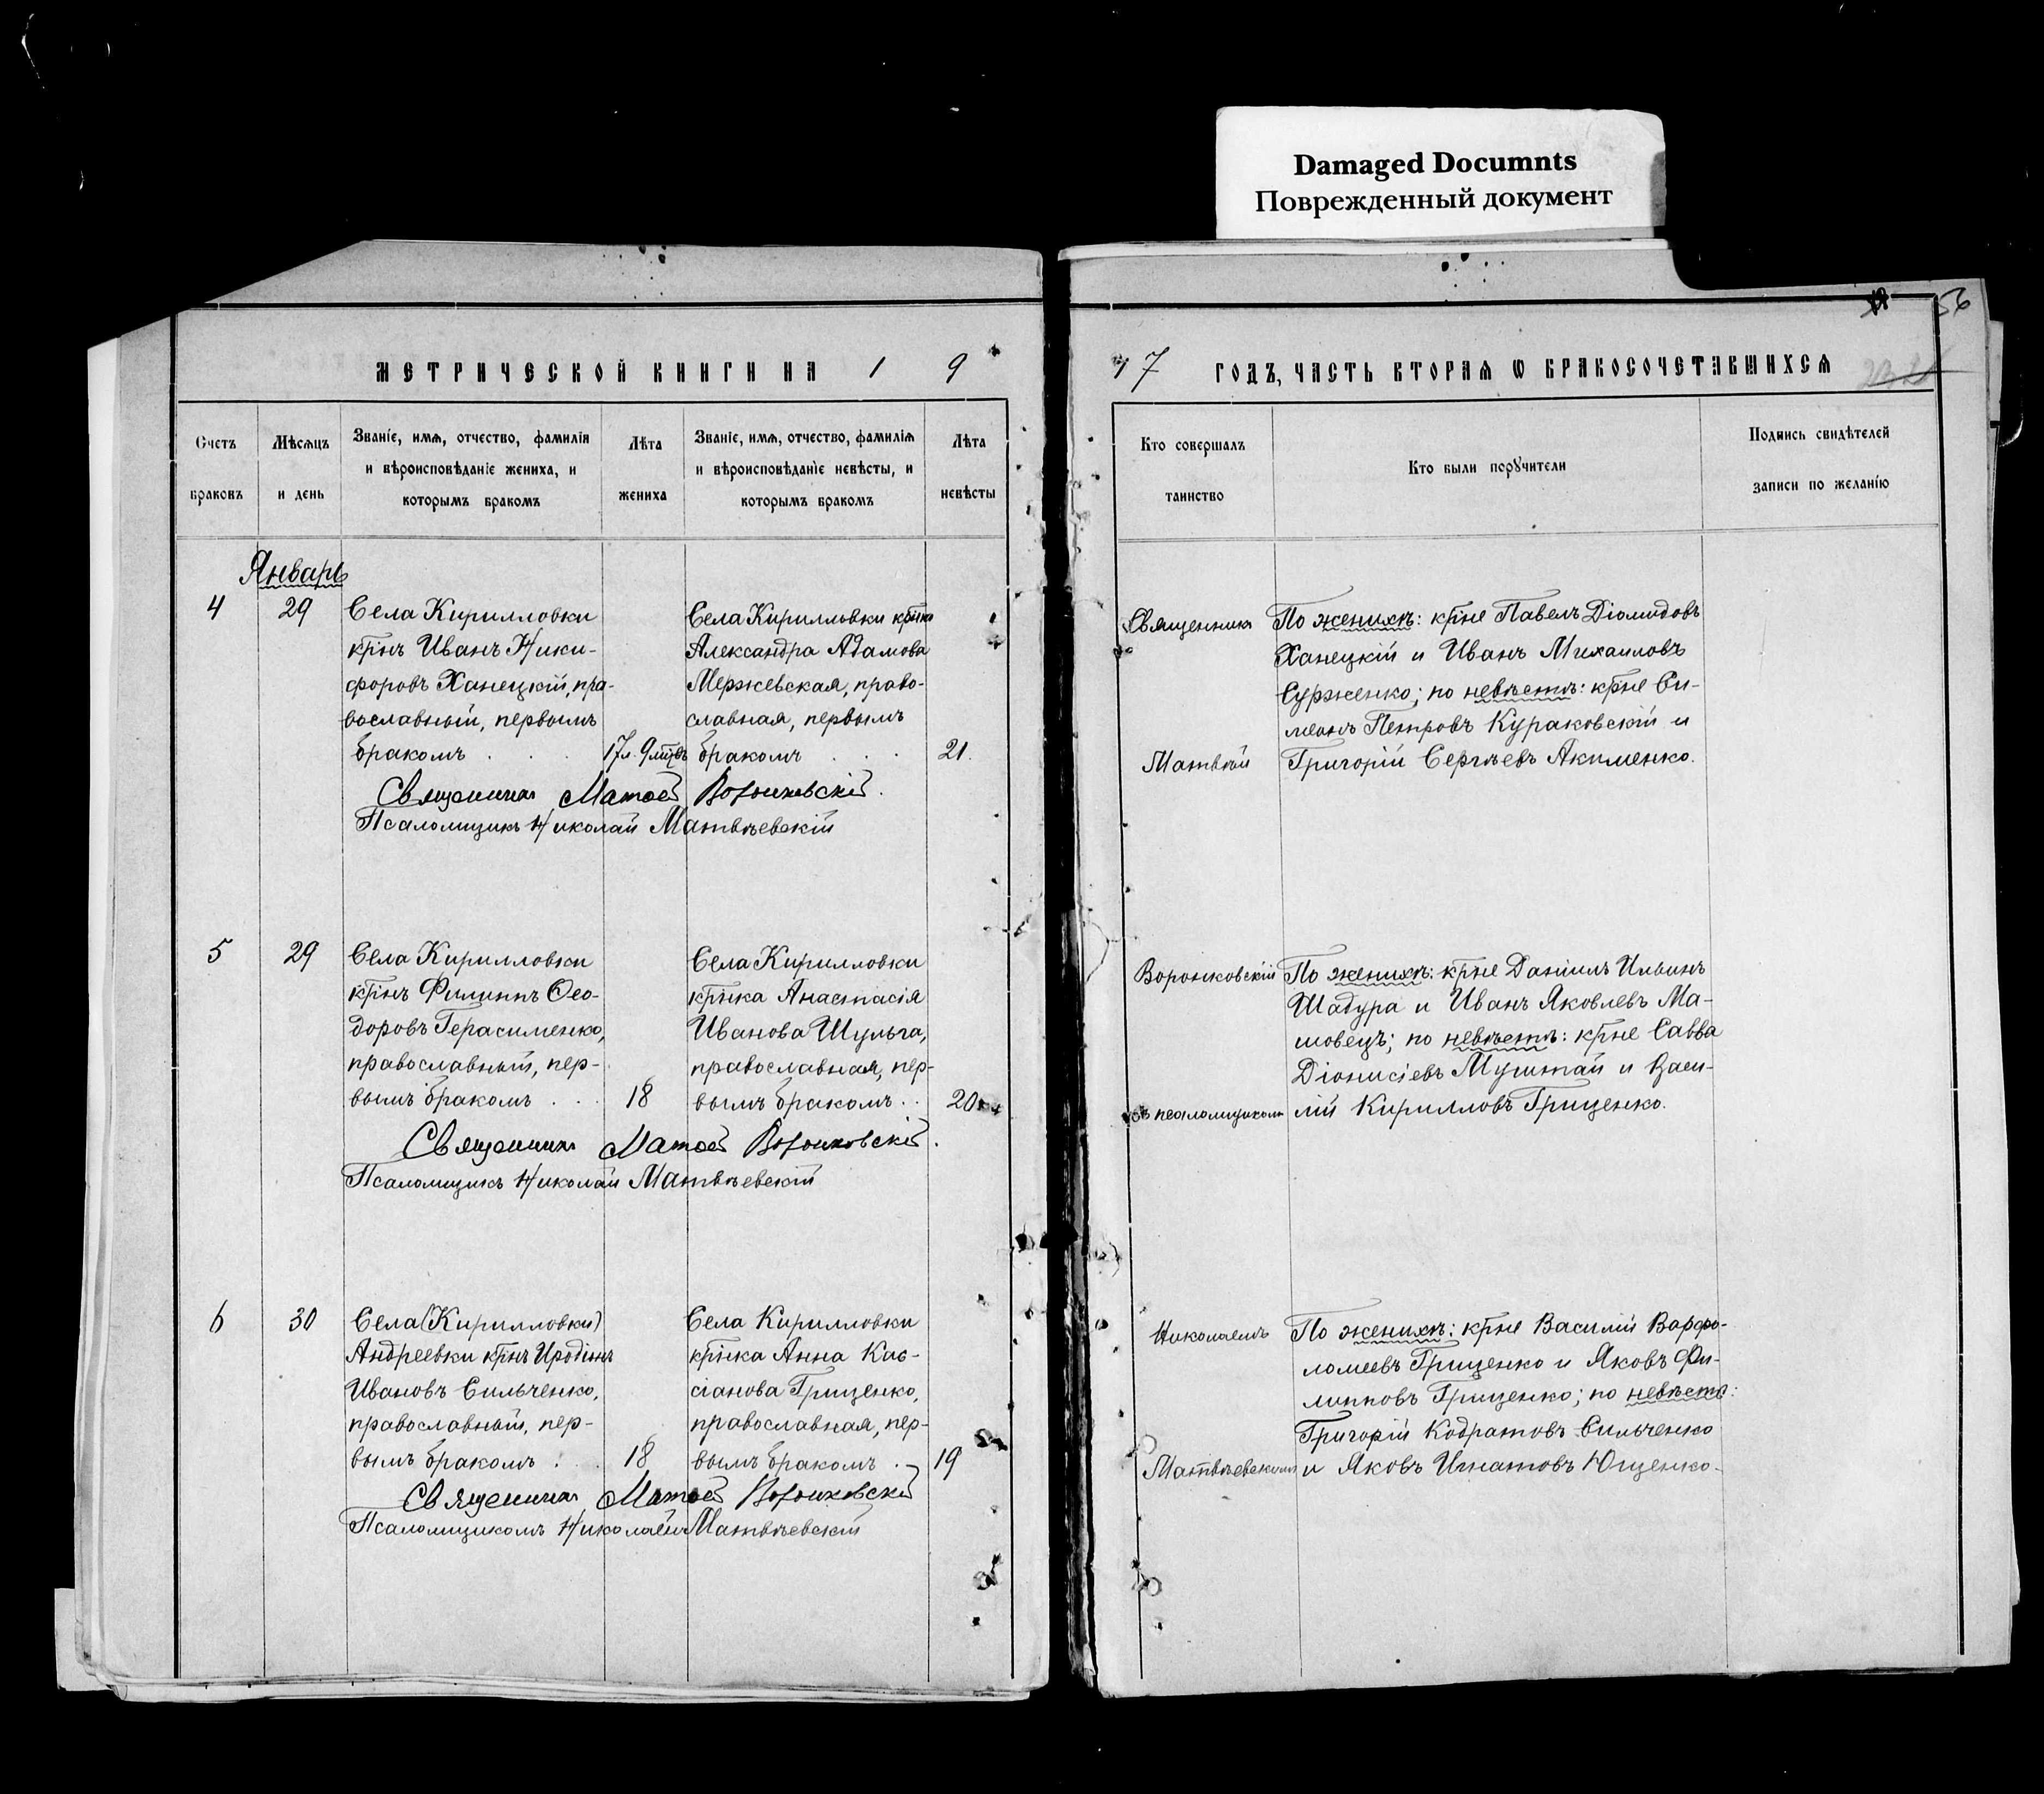 Damaged Documnts
Поврежденный документ
56
МЕТРИЧЕСКОЙ КНИГИ НА 1 9
7 ГОДЪ, ЧАСТЬ ВТОРАЯ Ѡ БРАКОСОЧЕТАВШИХСЯ
Счетъ браковъ
Мѣсяцъ и день
Званіе, имя, отчество, фамилія
и вѣроисповѣданіе жениха, и
которымъ бракомъ
Лѣта жениха
Званіе, имя, отчество, фамилія
и вѣроисповѣданіе невѣсты, и
которымъ бракомъ
Лѣта невѣсты
Кто совершалъ
таинство
Кто были поручители
Подпись свидѣтелей
записи по желанію
Январь
4
29
Села Кирилловки
крнъ Иванъ Ники-
форовъ Ханецкій, пра-
вославный, первымъ
бракомъ
17 л. 9 мцвъ
Села Кирилловки крнка
Александра Адамова
Мержевская, право-
славная, первымъ
бракомъ
21.
Священникъ Матѳей Воронковскій.
Псаломщикъ Николай Матвѣевскій
Священникъ
Матвѣй
По женихѣ: крне Павелъ Діомидовъ
Ханецкій и Иванъ Михаиловъ
Сурженко; по невѣстѣ: крне Си-
меонъ Петровъ Кураковскій и
Григорій Сергѣевъ Акименко.
5
29
Села Кирилловки
крнъ Филиппъ Ѳео-
доровъ Герасименко,
православный, пер-
вымъ бракомъ
18
Села Кирилловки
крнка Анастасія
Иванова Шульга,
православная, пер-
вымъ бракомъ
20
Священникъ Матѳей Воронковскій.
Псаломщикъ Николай Матвѣевскій
Воронковскій
съ псаломщикомъ
По женихѣ: крне Даніилъ Ильинъ
Шадура и Иванъ Яковлевъ Ма-
мовецъ; по невѣстѣ: крне Савва
Діонисіевъ Муштай и Васи-
лій Кирилловъ Гриценко.
6
30
Села (Кирилловки)
Андреевки крнъ Иродіонъ
Ивановъ Сильченко,
православный, пер-
вымъ бракомъ
18
Села Кирилловки
крнка Анна Кас-
сіанова Гриценко,
православная, пер-
вымъ бракомъ
19
Священникъ Матѳей Воронковскій
Псаломщикомъ Николаемъ Матвѣевскій
Николаемъ
Матвѣевскимъ
По женихѣ: крне Василій Варфо-
ломеевъ Гриценко и Яковъ Фи-
липповъ Гриценко; по невѣстѣ:
Григорій Кодратовъ Сильченко
и Яковъ Игнатовъ Ющенко.